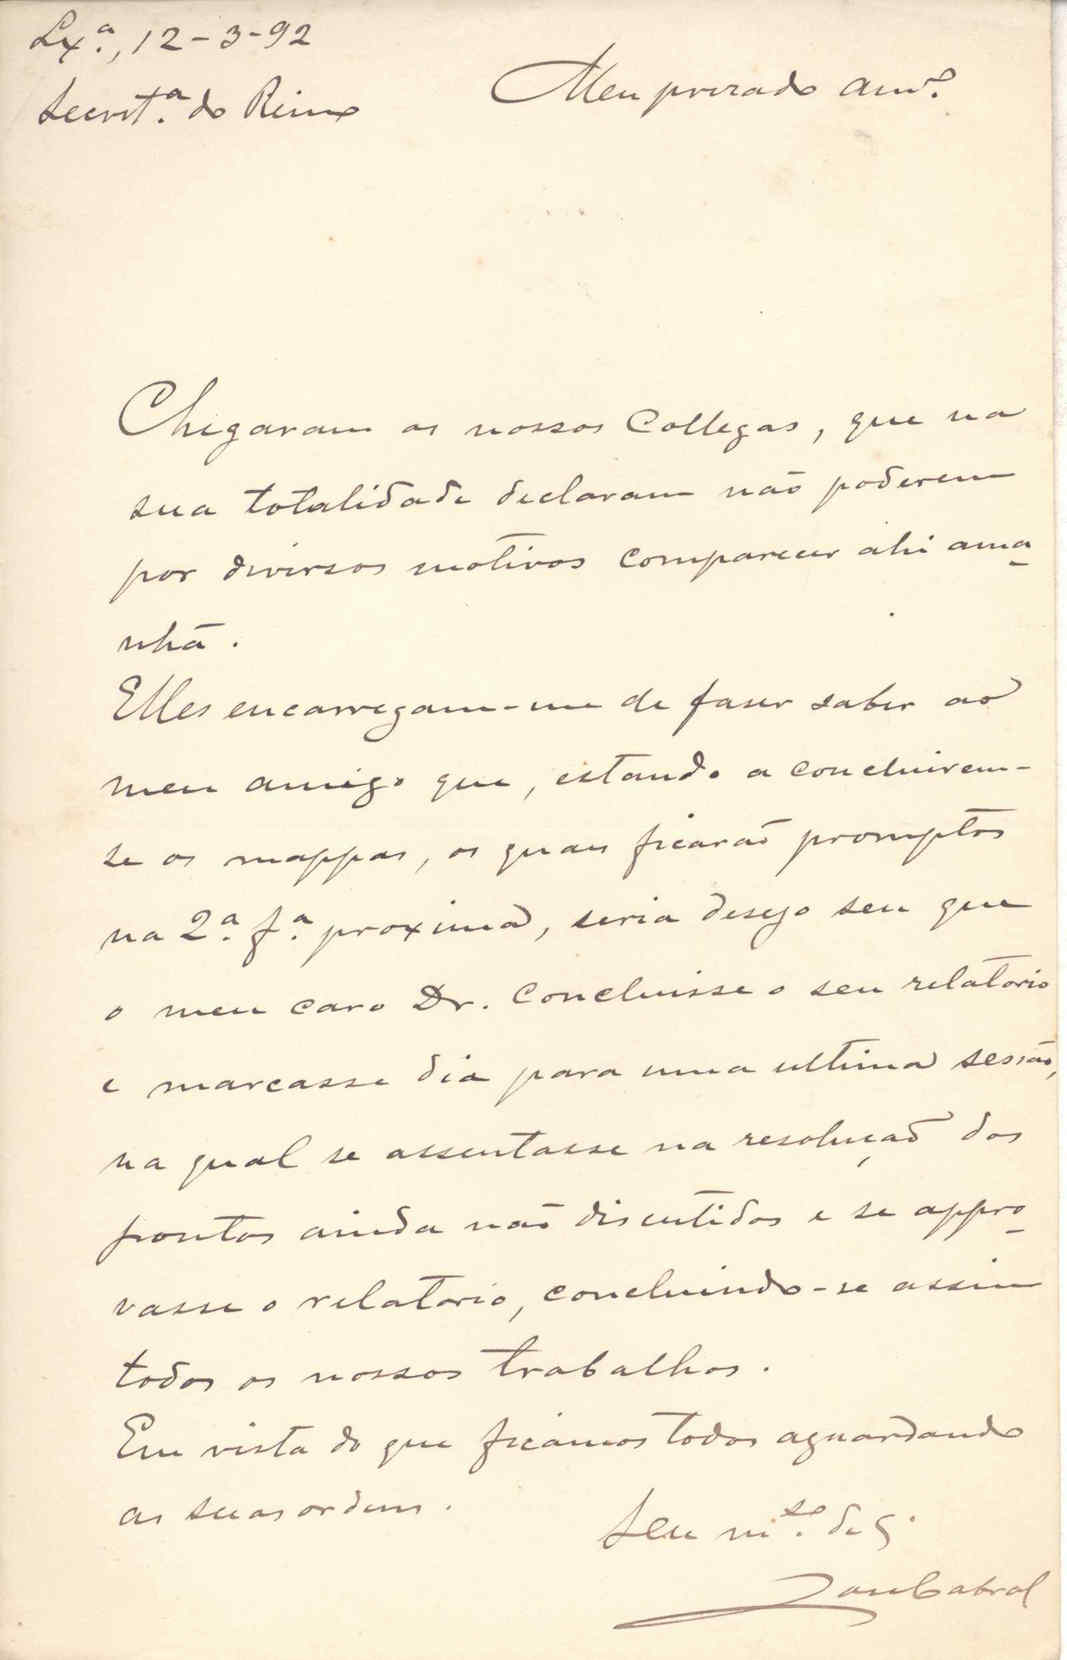 Lxª., 12-3-92
Secretª. do Reino
Meu prezado amº.
Chegaram os nossos Collegas, que na
sua totalidade declaram não poderem
por diversos motivos comparecer ahi ama-
nhã.
Elles encarregam-me de faser saber ao
meu amigo que, estando a concluirem-
se os mappas, os quaes ficarão promptos
na 2ª. fª. proxima, seria desejo seu que
o meu caro Dr. concluisse o seu relatorio
e marcasse dia para uma ultima sessão,
na qual se assentasse na resolução dos
pontos ainda não discutidos e se appro-
vasse o relatorio, concluindo-se assim
todos os nossos trabalhos.
Em vista do que ficamos todos aguardando
as suas ordens.
Seu mᵗᵒ. de
Cabral